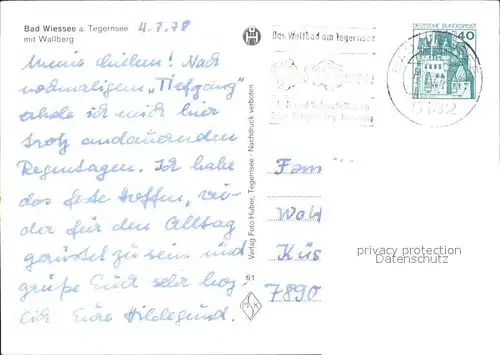 Bad Wiessee a. Tegernsee
mit Wallberg
4.7.78
Meine Lieben! Nach
nochmaligem „Tiefgang"
erhole ich mich hier
trotz andauernden
Regentagen. Ich habe
das feste Hoffen, wie-
der für den Alltag
gerüstet zu sein und
grüße Euch sehr herz-
lich Eure Hildegund.
Verlag Foto-Huber, Tegernsee · Nachdruck verboten
61
Das Weltbad am Tegernsee
DEUTSCHE BUNDESPOST
40
Fam
Wal
Küs
7890
privacy protection
Datenschutz